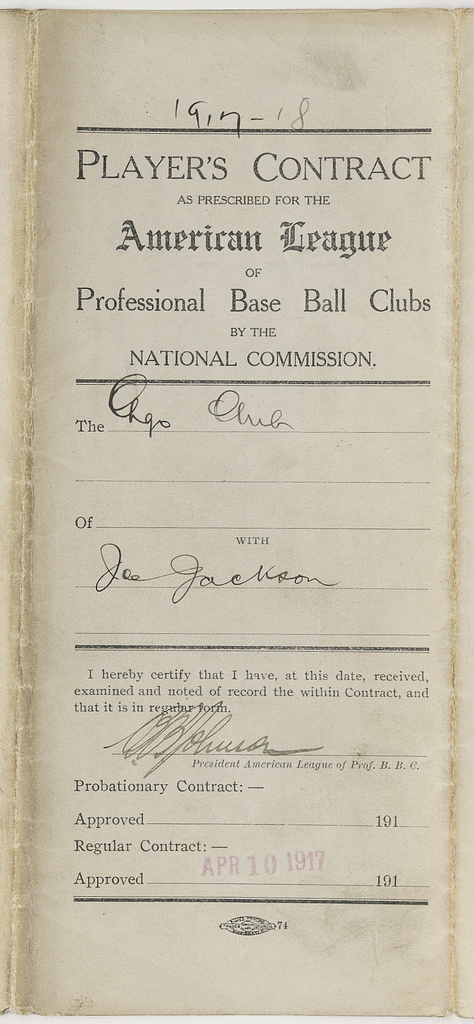 1917-18
PLAYER'S CONTRACT
AS PRESCRIBED FOR THE
American League
OF
Professional Base Ball Clubs
BY THE
NATIONAL COMMISSION.
The Chgo Club
Of
WITH
Joe Jackson
I hereby certify that I have, at this date, received,
examined and noted of record the within Contract, and
that it is in regular form.
BJohnson
President American League of Prof. B. B. C.
Probationary Contract: —
Approved 191
Regular Contract: —
APR 10 1917
Approved 191
74